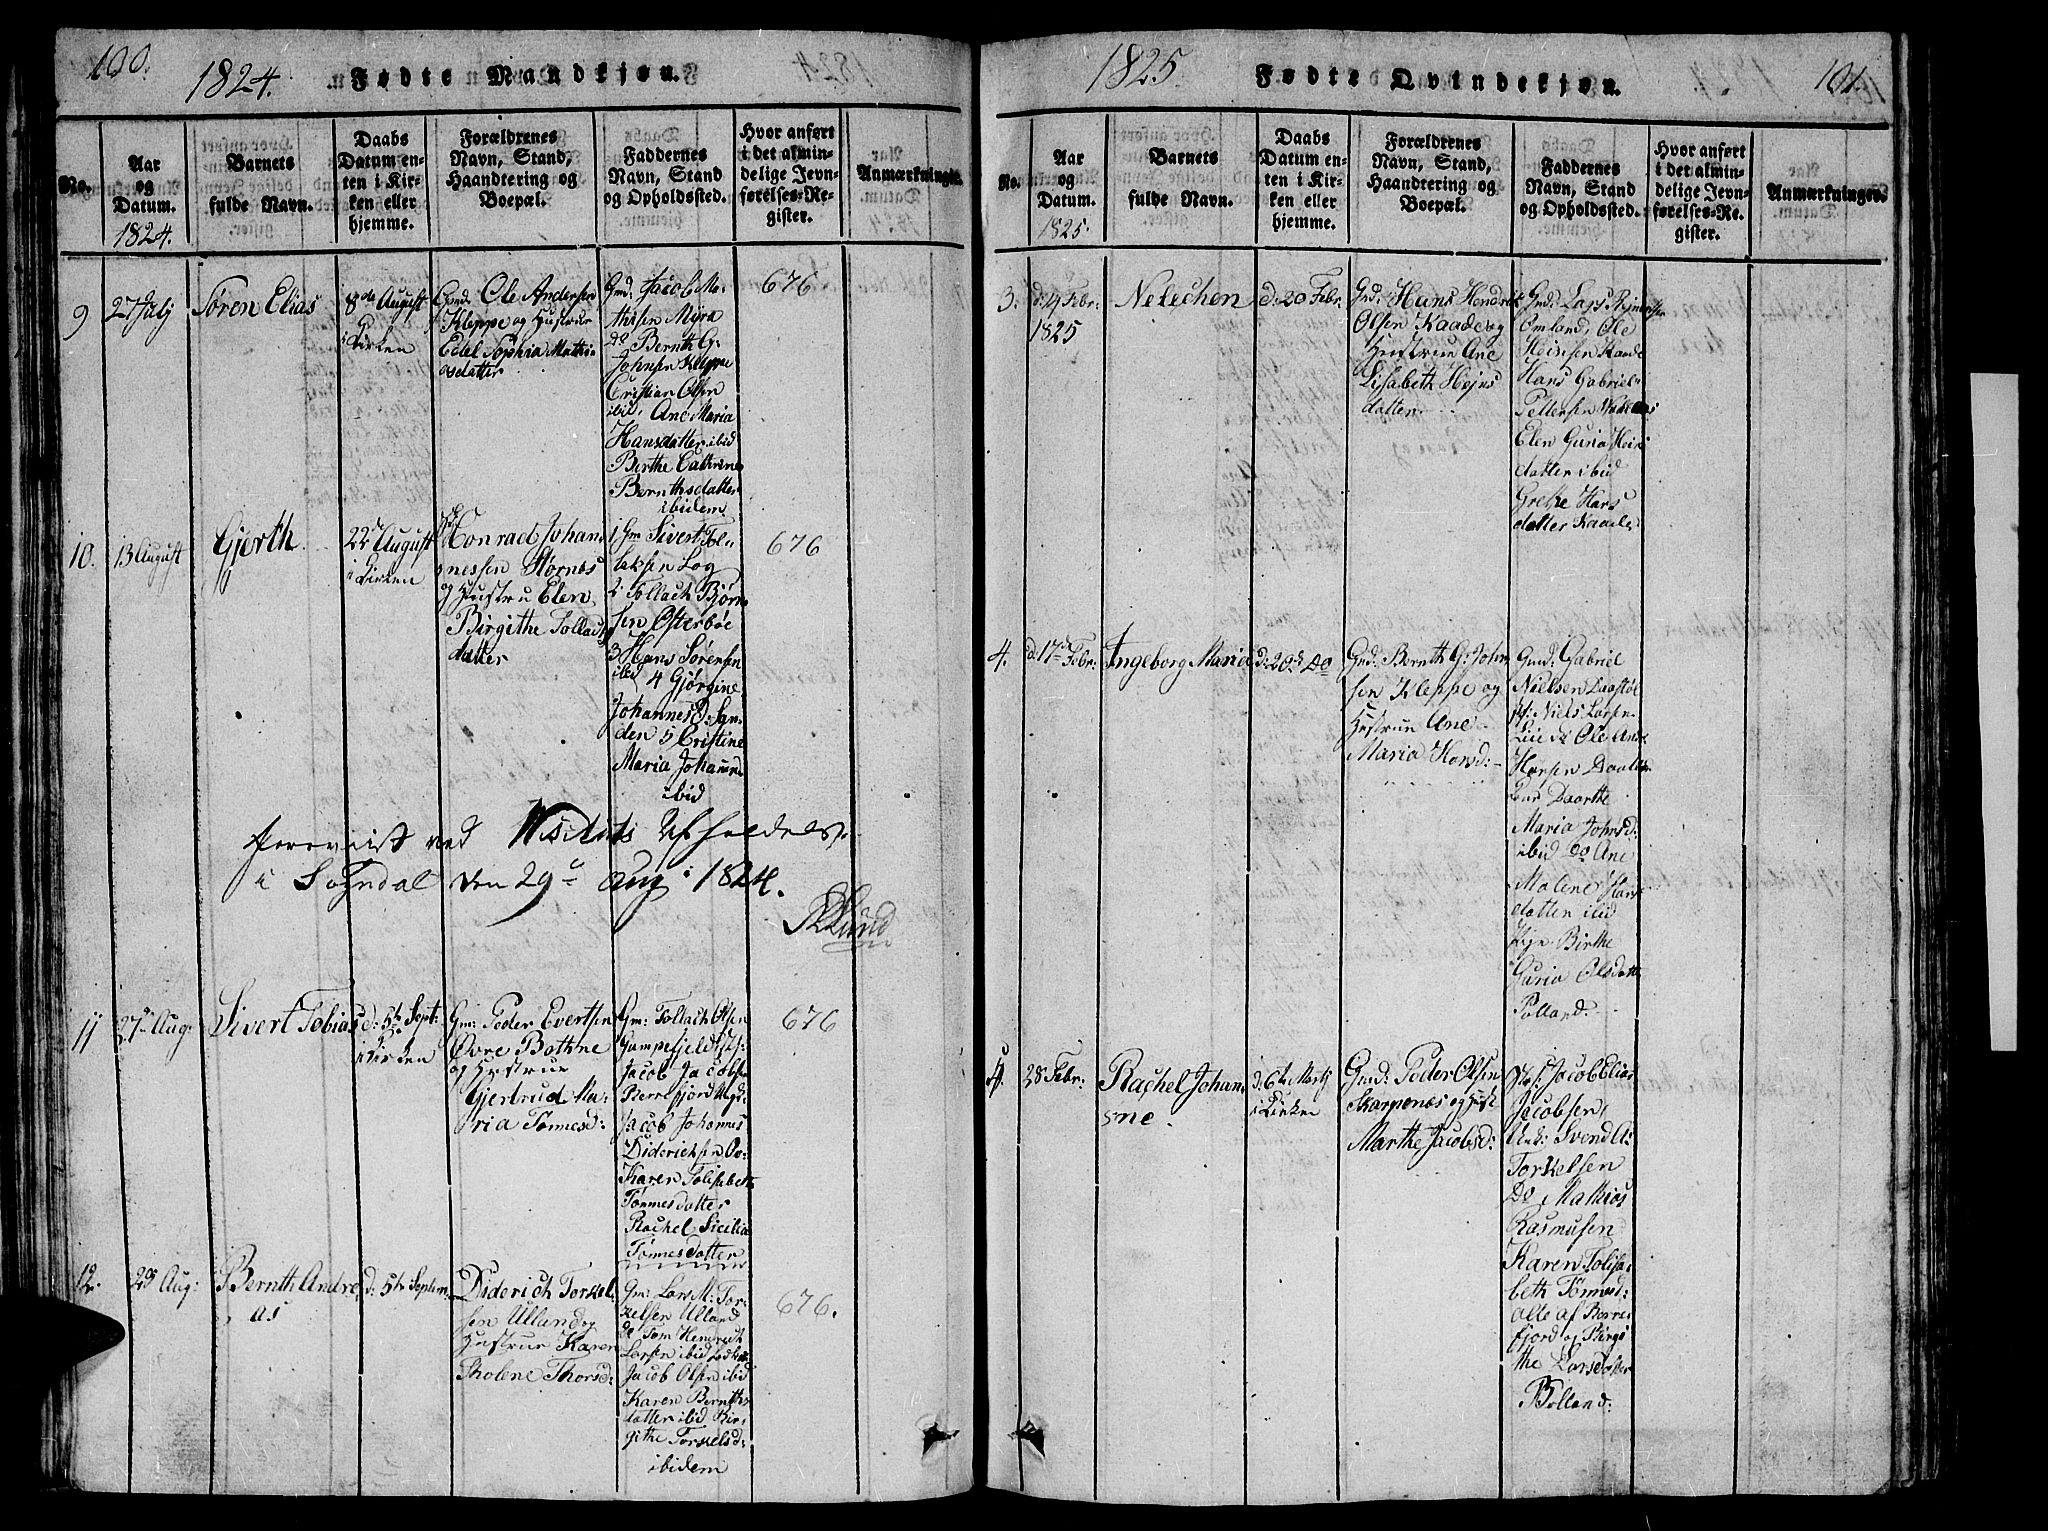 100.
1824.
Fødte Mandkjøn.
No.
Aar
og
Datum.
1824.
Barnets
fulde Navn.
Daabs
Datum en-
ten i Kir-
ken eller
hjemme.
Forældrenes
Navn, Stand,
Haandtering og
Boepæl.
Faddernes
Navn, Stand
og Opholdssted.
Hvor anført
i det almin-
delige Jevn-
førelses-Re-
gister.
Anmærkninger.
9
27 July
Søren Elias
8de August
i Kirken
Gmd. Ole Andersen
Kleppe og Hustrue
Edel Sophia Mathi-
asdatter
Gmd. Jacob Ma-
thisen Myra
do Bernth G.
Johnsen Kleppe
Cristian Olsen
ibid, Ane Maria
Hansdatter ibid
Berthe Cathrine
Bernthsdatter
ibidem
676
10.
13 August
Gjerth
22de August
i Kirken
Konrad Johan-
nessen Stornes
og Hustru Elen
Birgithe Tollach
datter
1 Gm Sivert Tol-
laksen Log
2 Tollach Bjørn-
sen Østerbøe
3 Hans Sørensen
ibid 4 Gjørgine
Johannesd: San-
den 5 Cristine
Maria Johannd
ibid
676
foreviist ved Visitats Afholdelse
i Sogndal den 29de Aug: 1824.
Lund
11
27de Aug:
Sivert Tobias
d: 5te Sept:
i Kirken
Gm: Peder Evertsen
Øvre Bothne
og Hustrue
Gjertrud Ma-
ria Tønnesd:
Gm: Tollach Olsen
Jampefjeld
Jacob Jacobsen
Berrefjord Ungd:
Jacob Johannes
Diderichsen
Karen Tolisabeth
Tønnesdatter
Rachel Sicilia
Tønnesdatter
676
12.
29 Aug:
Bernth Andre-
as
d: 5te Septem
Diderich Torkel-
sen Ulland og
Hustrue Karen
Tholene Thorsd:
Gm: Lars M: Tor-
kelsen Ulland
do Tom Hendrich
Larsen ibid
Jacob Olsen ibid
Karen Bernths
datter ibid Bir-
githe Torkelsd:
ibidem
676.
1825
Fødte Qvindekjøn.
101.
No.
Aar
og
Datum.
1825.
Barnets
fulde Navn.
Daabs
Datum en-
ten i Kir-
ken eller
hjemme.
Forældrenes
Navn, Stand,
Haandtering og
Boepæl.
Faddernes
Navn, Stand
og Opholdssted.
Hvor anført
i det almin-
delige Jevn-
førelses-Re-
gister.
Anmærkninger.
3.
d: 14 Febr:
1825
Nelechen
d: 20 Febr.
Gmd: Hans Hendrik
Olsen Kaade og
Hustrue Ane
Lisabeth Hejns
datter
Gmd: Lars
Omland, Ole
Heinsen Kaade
Hans Gabriel
Pettersen
Elen Guria Heins
datter ibid
Grethe Hans
datter Kaade
4.
d. 17de Febr:
Ingeborg Maria
d: 20de Do
Gmd: Bernth G: John-
sen Kleppe og
Hustrue Ane
Maria Hansd:
Gmd: Gabriel
Nielsen
Niels Larsen
Ole
Hansen
Daarthe
Maria Johnsd:
ibid Do Ane
Malene Hans
datter ibid
Pige Birthe
Guria Olsdatter
Polland.
5.
28 Febr:
Rachel Johan-
ne.
d: 6te Martj
i Kirken
Gmd: Peder Olsen
Skarpenæs og Hust
Marthe Jacobsd:
Jacob Elias
Jacobsen
Unk: Svend A:
Torkelsen
Do Mathias
Rasmusen
Karen Tolisa-
beth Tønnesd:
alle af Berre-
fjord og Birgi-
the Larsdatter
Bolland.